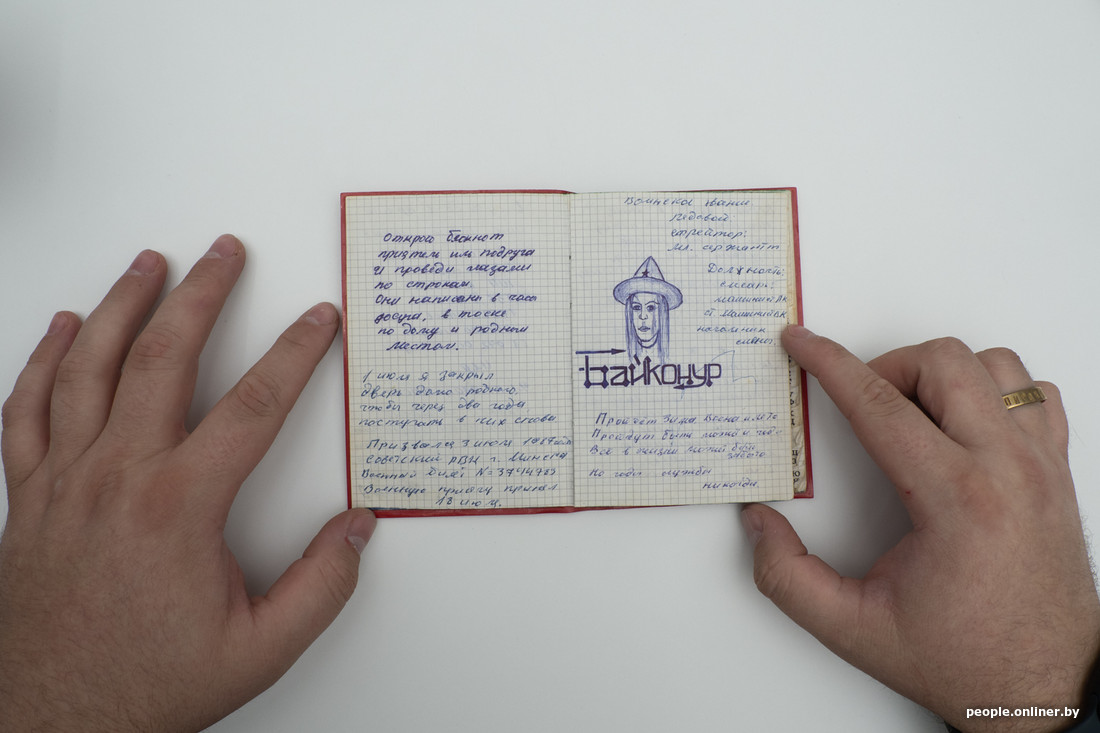 Открою блокнот
приятель иль подруга
И проведи глазами
по строкам.
Они написаны в часы
досуга, в тоске
по дому и родным
местам.
1 июля я закрыл
дверь дома родного,
чтобы через два года
постучать в них снова.
Призвался 3 июля 1987 года
Советским РВК г. Минска
Военный билет
Военную присягу принял
18 июля.
Воинское звание
рядовой
ефрейтор:
мл. сержант
Должность:
писарь:
машинист
ст. машинист
начальник
смены.
Байконур
Пройдёт зима весна и лето
Пройдут быть может и года
Всё в жизни может быть
забыто
Но годы службы
никогда.
people.onliner.by